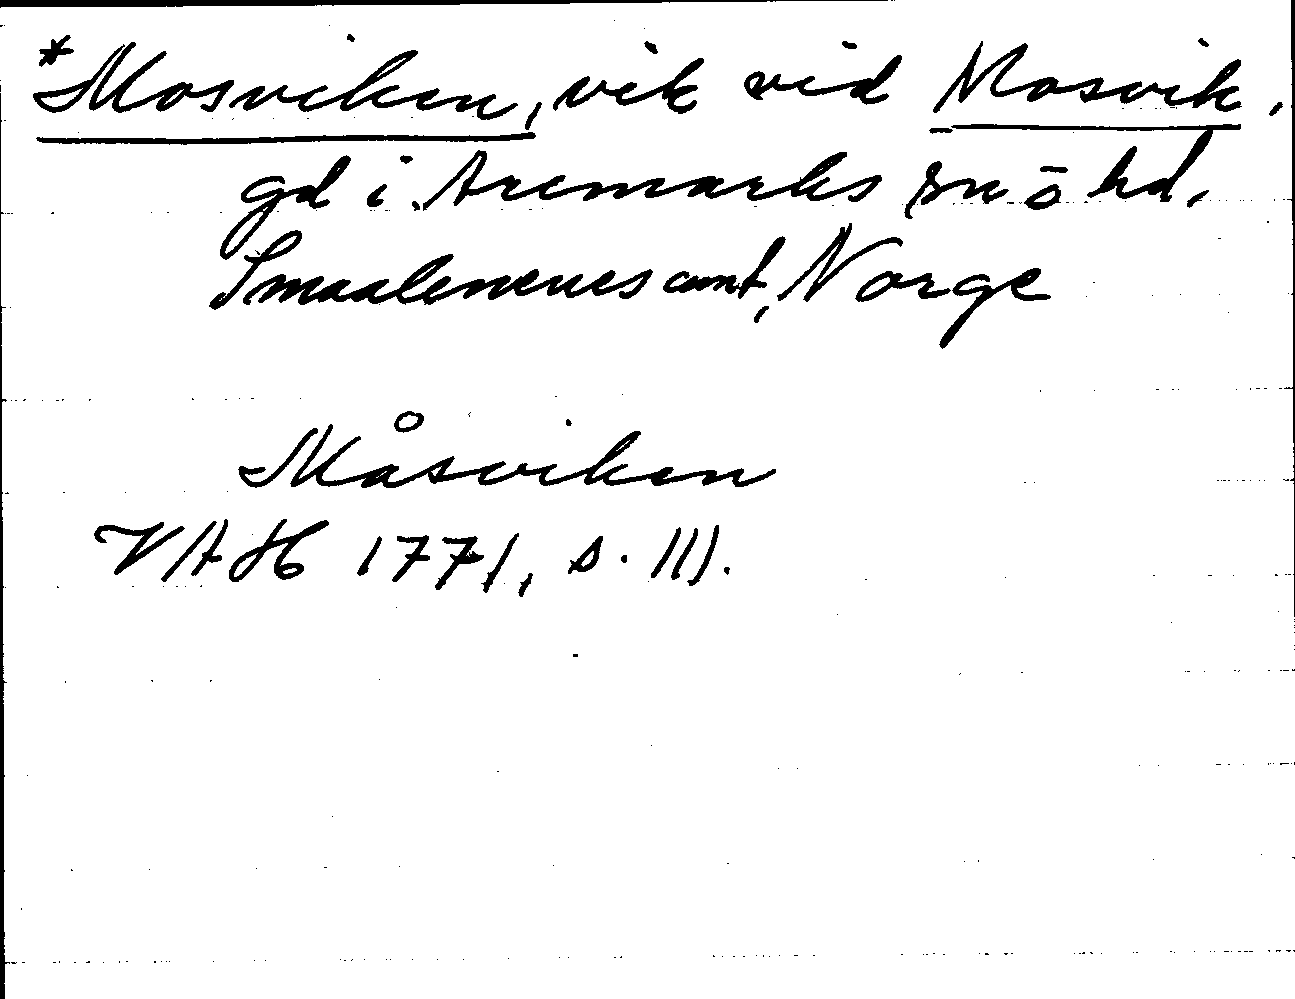 *Mosviken, vik vid Mosvik,
gd i Aremarks sn o hd,
Smaalenenes amt, Norge
Måsviken
VAH 1771, s. 111.